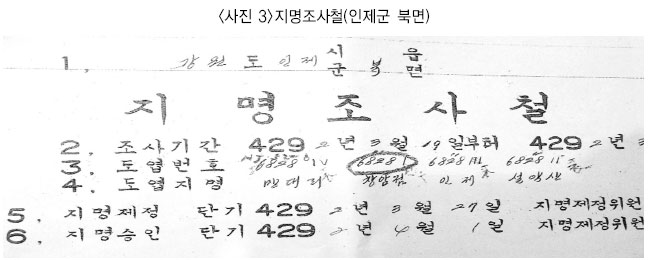 <사진 3>지명조사철(인제군 북면)
1. 강원 도 인제 시군 북 읍면
지 명 조 사 철
2. 조사기간 429 2년 3월 19일부터 429 2년 3
3. 도엽번호 6828 IV 6828 I 6828 III 6828 II
4. 도엽지명 인제 설악산
5. 지명제정 단기 429 2년 3월 27일 지명제정위원
6. 지명승인 단기 429 2년 4월 1일 지명제정위원